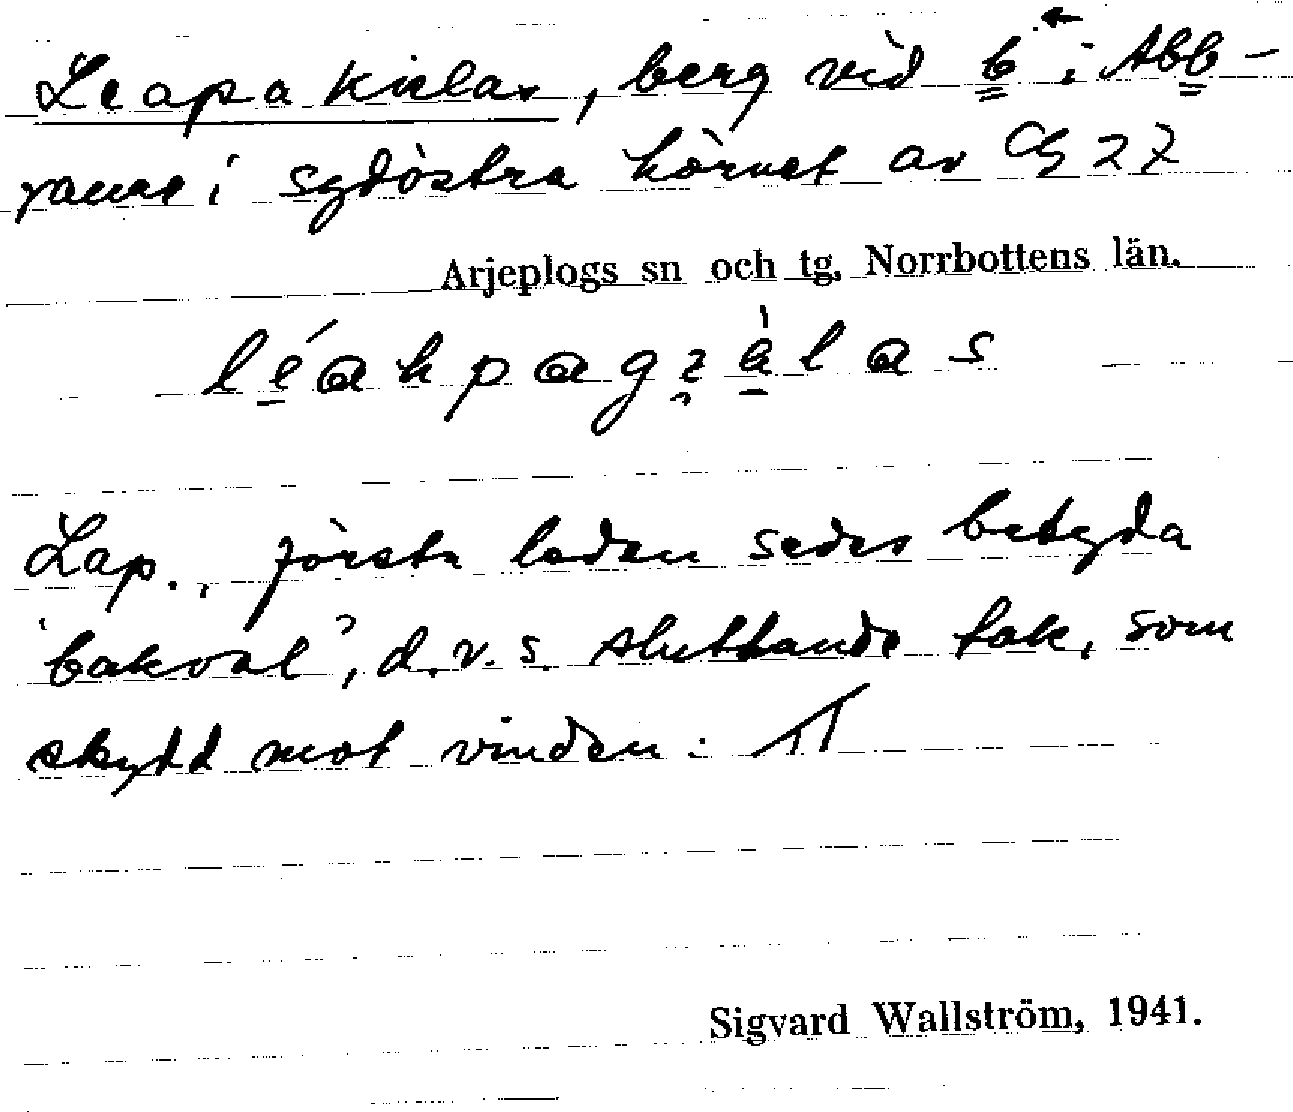 Leapakielas, berg vid b i Abb-
raure i sydöstra hörnet av C 27
Arjeplogs sn och tg, Norrbottens län.
Lap., första leden sades betyda
'bakval', d.v.s. sluttande tak, som
skydd mot vinden:
Sigvard Wallström, 1941.